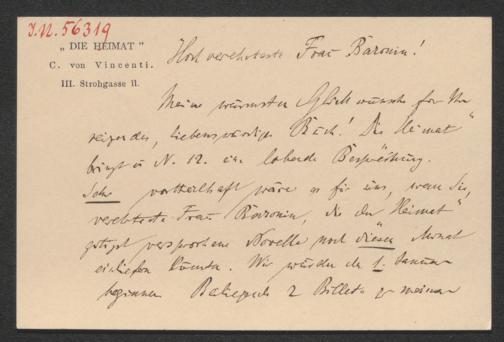 I.N. 56319
„DIE HEIMAT"
C. von Vincenti.
III. Strohgasse 11.
Hochverehrteste Frau Baronin!
Meine wärmsten Glückwünsche für Ihr
reizendes, liebenswürdiges Buch! Die „Heimat"
bringt in N. 12. eine lobende Besprechung.
Sehr vortheilhaft wäre es für uns, wenn Sie,
verehrteste Frau Baronin, die der „Heimat"
gütigst versprochene Novelle noch diesen Monat
einliefern könnten. Wir würden den 1. Januar
beginnen. Beiliegend 2 Billete zu meinen